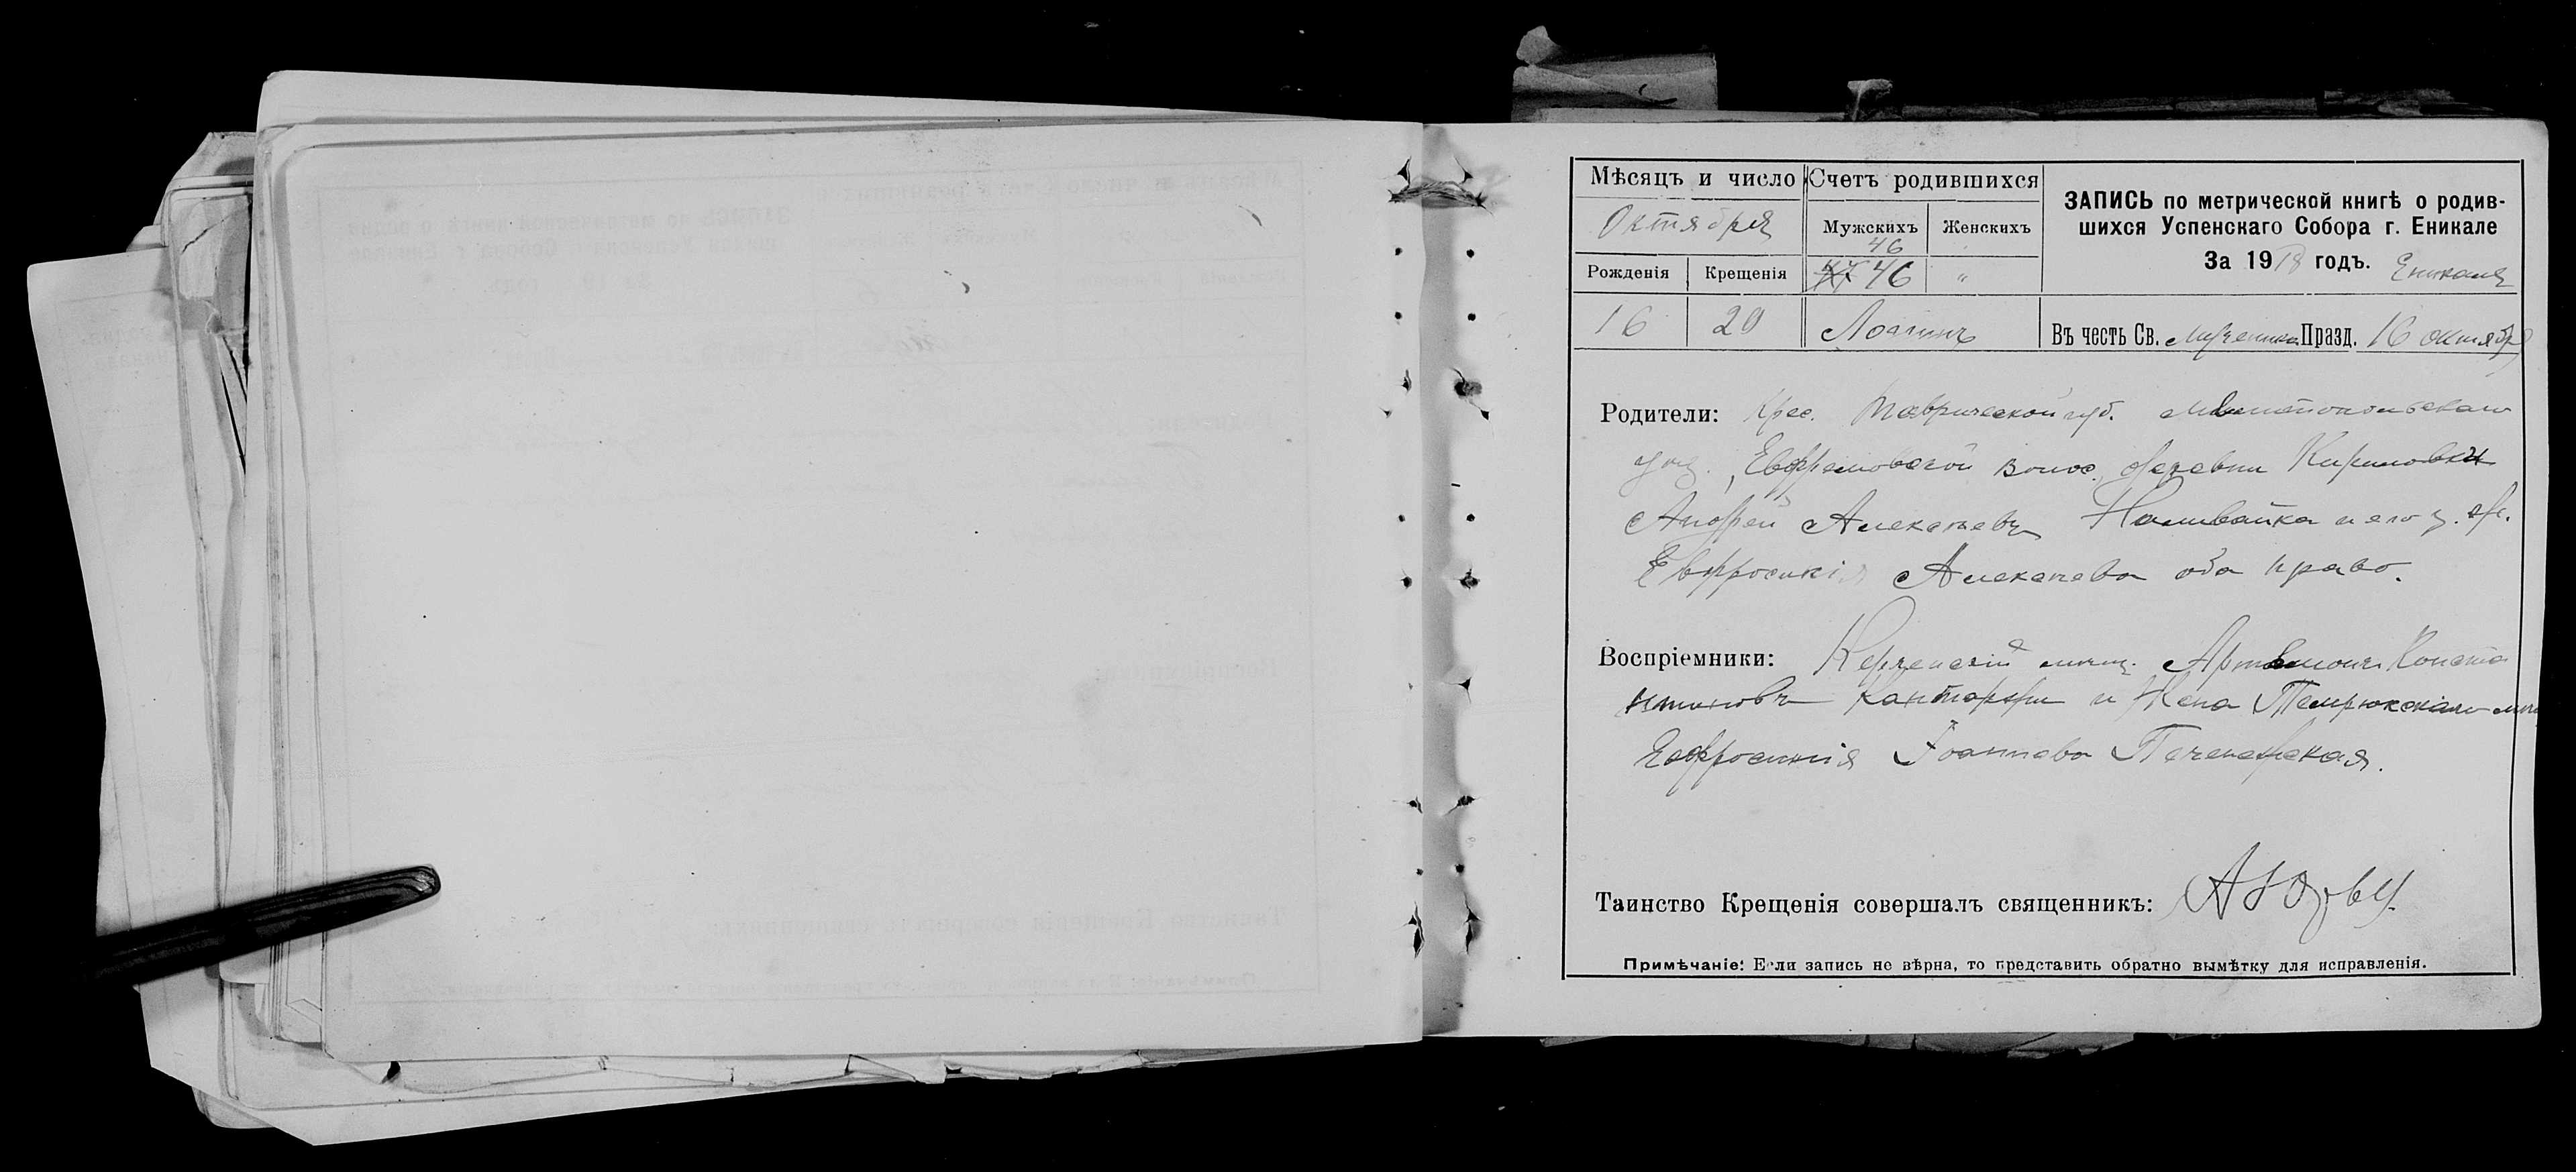 Мѣсяцъ и число
Октября
Рожденія
Крещенія
16
20
Счетъ родившихся
Мужскихъ
Женскихъ
46
47 46
"
Логинъ
ЗАПИСЬ по метрической книгѣ о родив-
шихся Успенскаго Собора г. Еникале
За 1918 годъ.
Еникале
Въ честь Св. мученика Празд. 16 октября
Родители: Крес. Таврической губ. Мелитопольскаго
уѣз., Ефремовской волос. деревни Кириловки
Андрей Алексѣевъ Наливайка и его з. ж.
Евфросинія Алексѣева оба право.
Воспріемники: Керченскій мѣщ. Артемонъ Конста
нтиновъ и жена Темрюкскаго мѣщ
Евфросинія Іоаннова
Таинство Крещенія совершалъ священникъ:
Примѣчаніе: Если запись не вѣрна, то представить обратно вымѣтку для исправленія.